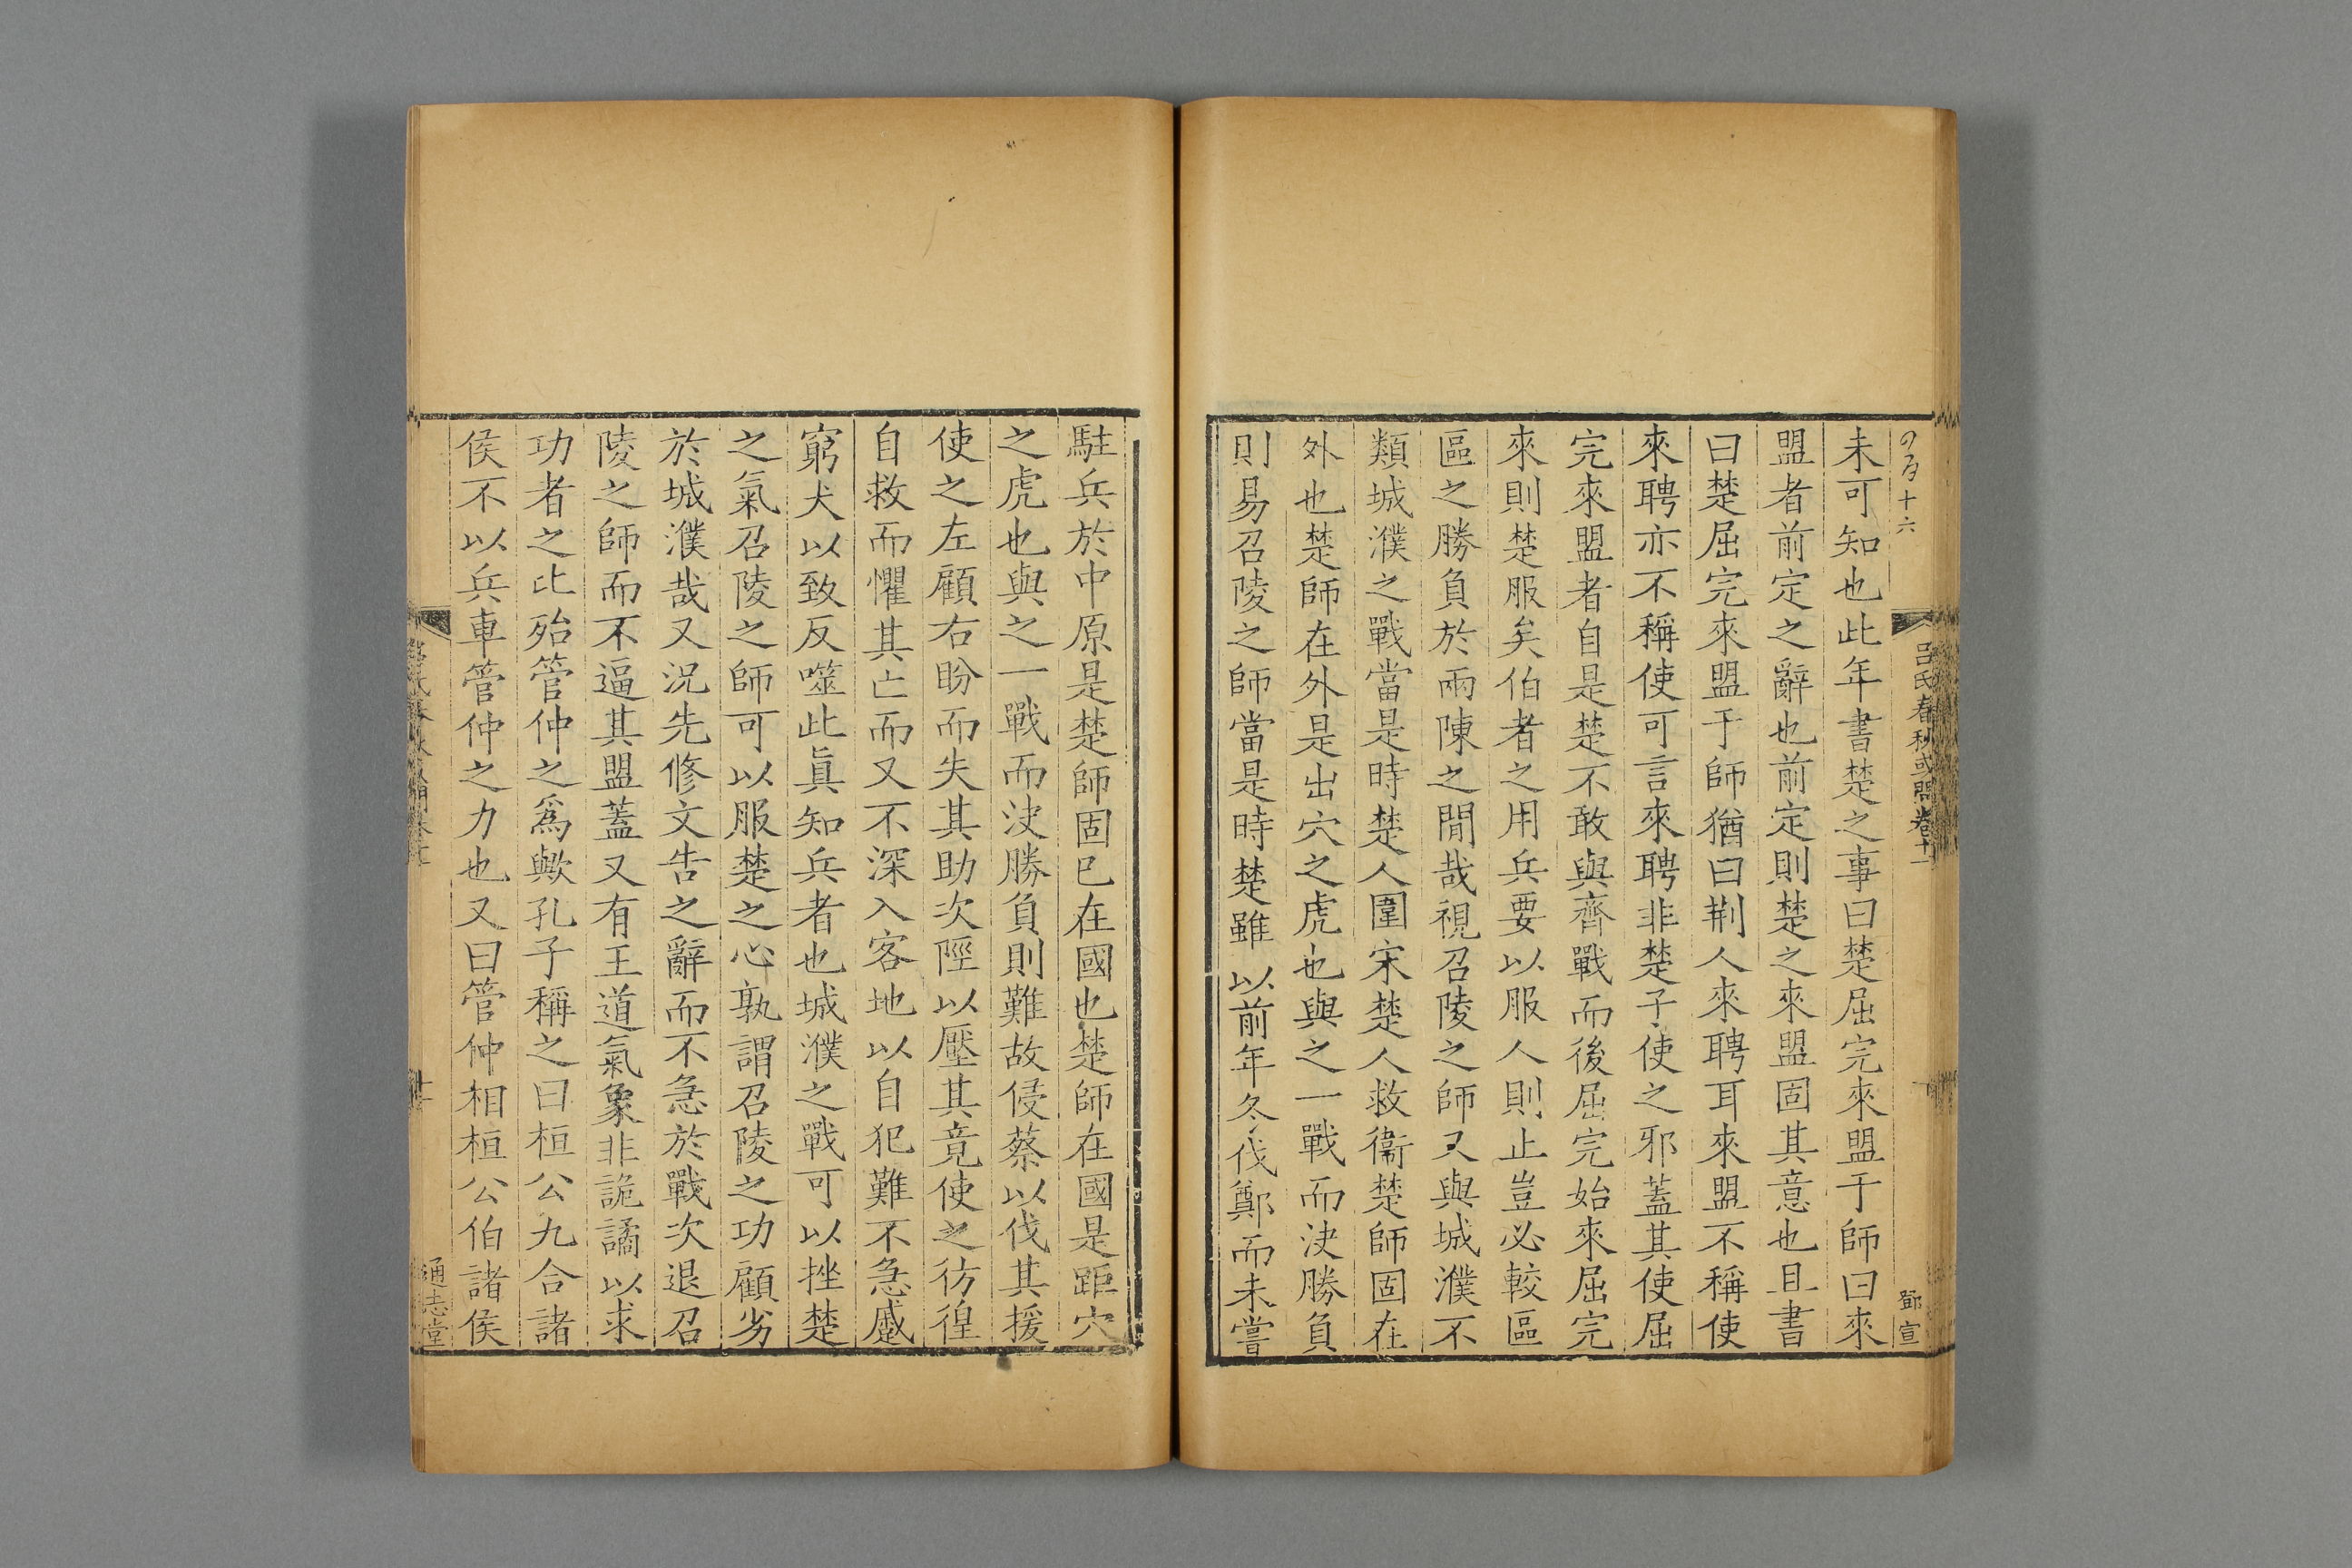 吕氏春秋或問卷十一
鄧宣
未可知也此年書楚之事曰楚屈完來盟于師曰來
盟者前定之辭也前定則楚之來盟固其意也且書
曰楚屈完來盟于師猶曰荆人來聘耳來盟不稱使
來聘亦不稱使可言來聘非楚子使之邪蓋其使屈
完來盟者自是楚不敢與齊戰而後屈完始來屈完
來則楚服矣伯者之用兵要以服人則止豈必較區
區之勝負於兩陳之閒哉視召陵之師又與城濮不
類城濮之戰當是時楚人圍宋楚人救衞楚師固在
外也楚師在外是出穴之虎也與之一戰而決勝負
則易召陵之師當是時楚雖以前年冬伐鄭而未嘗
駐兵於中原是楚師固已在國也楚師在國是距穴
之虎也與之一戰而決勝負則難故侵蔡以伐其援
使之左顧右盼而失其助次陘以壓其竟使之彷徨
自救而懼其亡而又不深入客地以自犯難不急蹙
窮犬以致反噬此眞知兵者也城濮之戰可以挫楚
之氣召陵之師可以服楚之心孰謂召陵之功顧劣
於城濮哉又況先修文告之辭而不急於戰次退召
陵之師而不逼其盟蓋又有王道氣象非詭譎以求
功者之比殆管仲之爲歟孔子稱之曰桓公九合諸
侯不以兵車管仲之力也又曰管仲相桓公伯諸侯
十一
通志堂